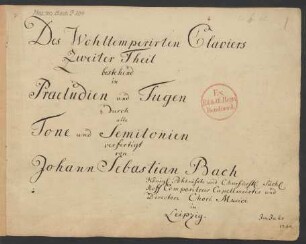 Mus. ms. Bach P 430
Des Wohltemperirten Claviers
Zweiter Theil
bestehend
in
Praeludien und Fugen
durch
alle
Tone und Semitonien
verfertigt
von
Johann Sebastian Bach
Königl. Pohlnisch und Churfürstl. Sächs.
Hoff Compositeur Capellmeister und
Directore Chori Musici
in
Leipzig.
Im Jahr
Ex
Biblioth. Regia
Berolinensi.